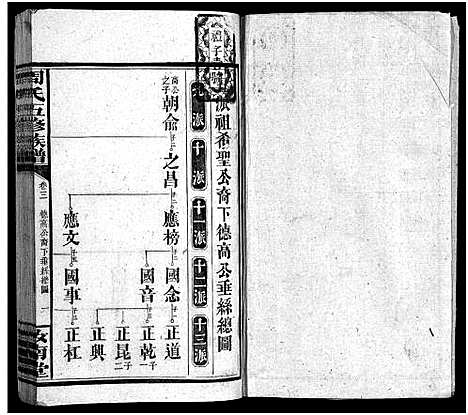 派祖希聖公裔下德高公垂絲總圖
九派
十派
十一派
十二派
十三派
高公之子
朝俞
之昌
應榜
國念
正道
國音
正乾
正昆
正興
應文
國事
正杠
周氏五修族譜
卷三
德高公裔下垂絲總圖
汝南堂